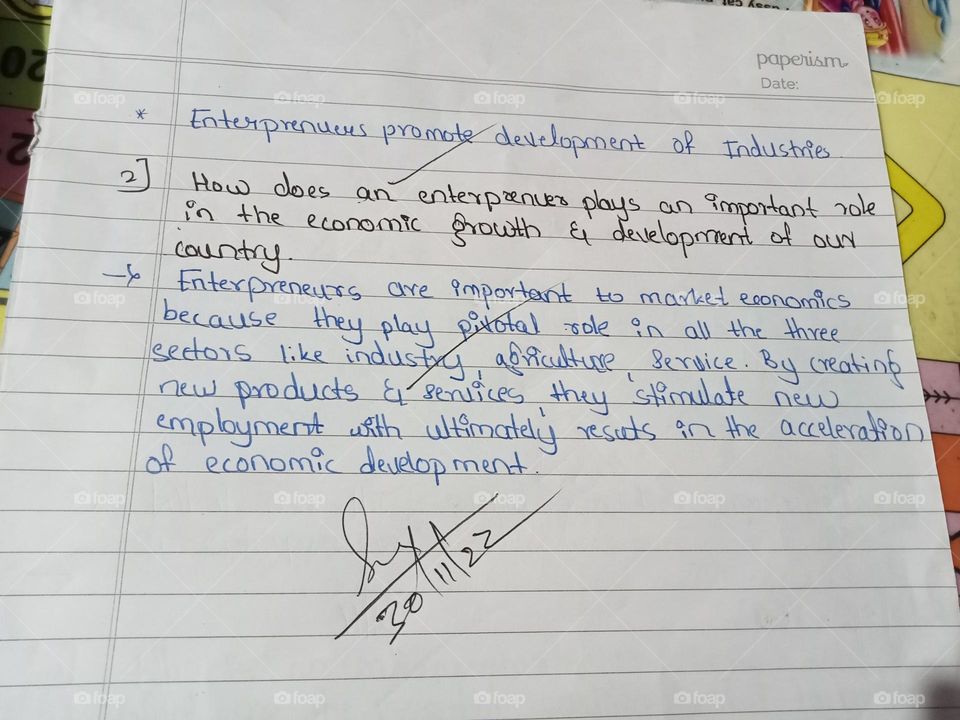 paperism
Date:
* Enterprenuers promote development of Industries.
2] How does an enterprenuer plays an important role
in the economic growth & development of our
country.
→ Enterpreneurs are important to market economics
because they play pivotal role in all the three
sectors like industry, agriculture, service. By creating
new products & services, they stimulate new
employment with ultimately resuts in the acceleration
of economic development.
30/11/22